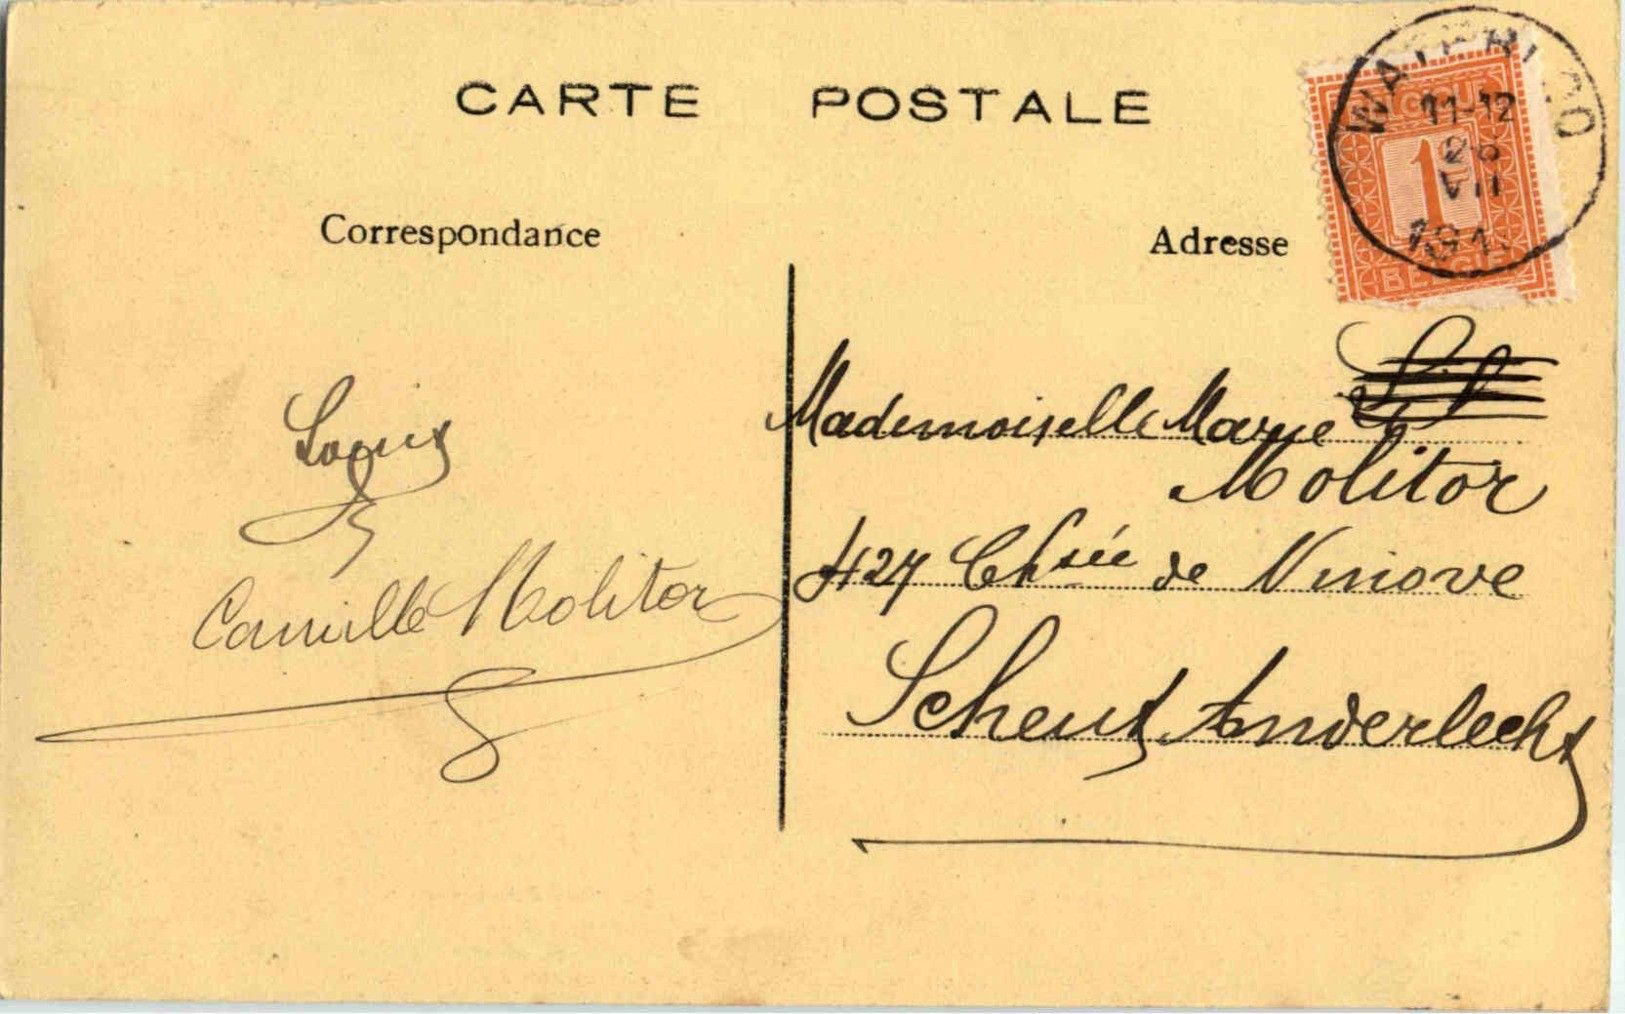 CARTE POSTALE
Correspondance
Adresse
WATERLOO
11-12
VII
191
1
BELGIË
Louis
Camille Molitor
Mademoiselle Marie
Molitor
427 Chsée de Ninove
Scheut Anderlecht